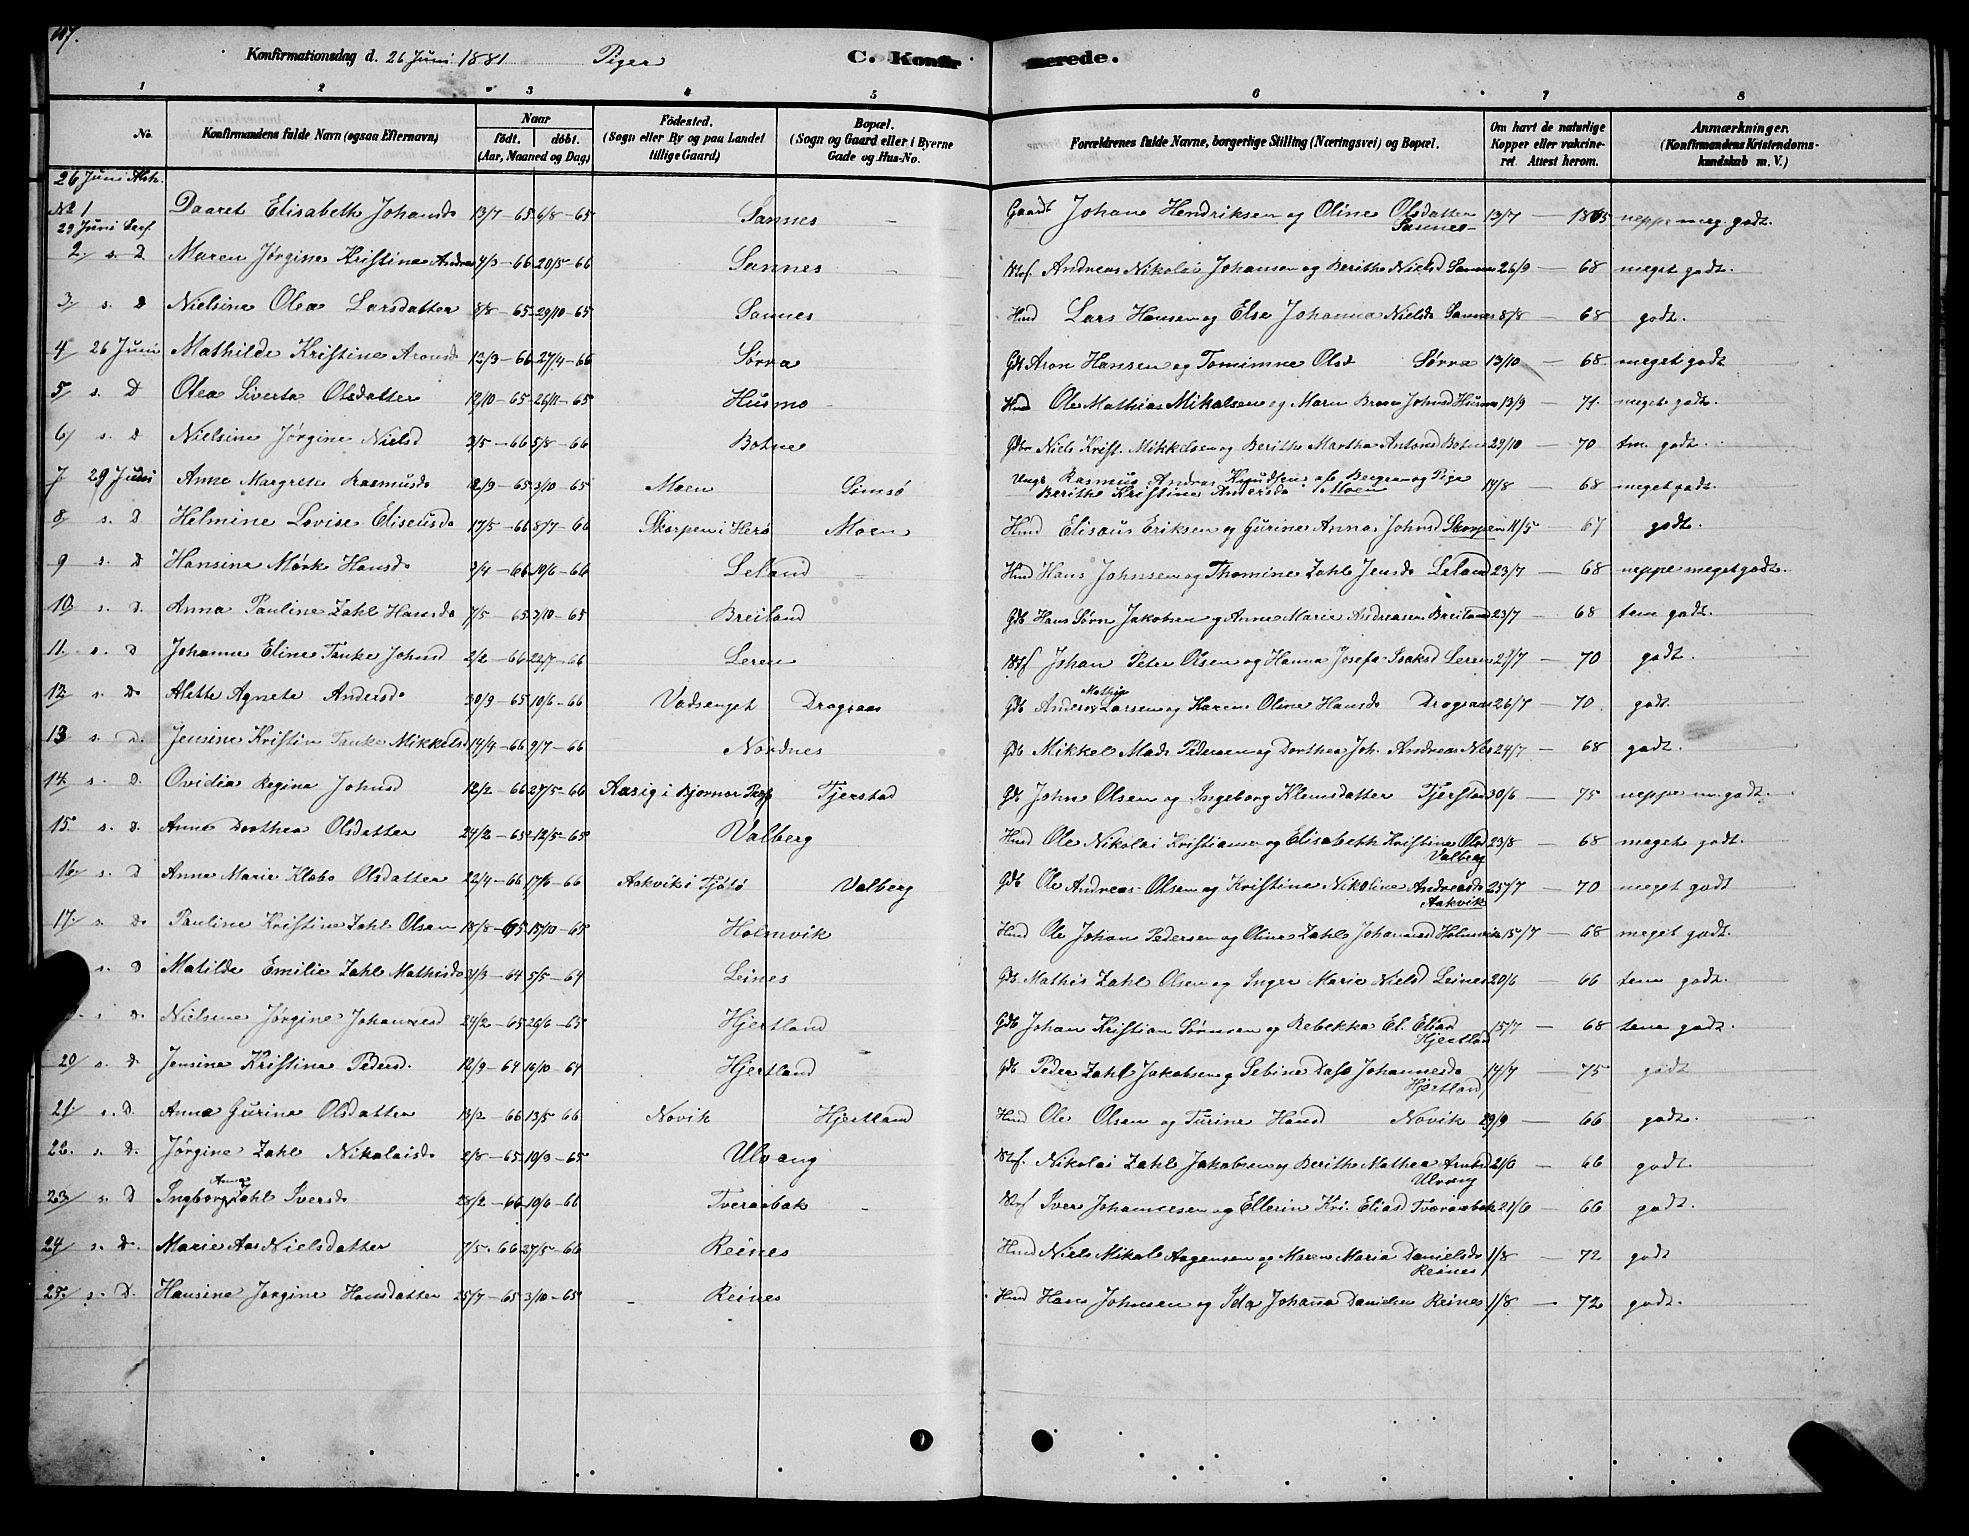 107.
Konfirmationsdag d. 26 Juni 1881 Piger C. Konfirmerede.
1 2 3 4 5 6 7 8
No. Konfirmandens fulde Navn (ogsaa Efternavn) Naar födt. döbt. (Aar, Maaned og Dag) Födested. (Sogn eller By og paa Landet tillige Gaard) Bopæl. (Sogn og Gaard eller i Byerne Gade og Hus-No. Forældrenes fulde Navne, borgerlige Stilling (Næringsvei) og Bopæl. Om havt de naturlige Kopper eller vakcineret. Attest herom. Anmærkninger. (Konfirmandens Kristendomskundskab m. V.)
26 Juni
No 1 Daaret Elisabeth Johansd 13/7 - 65 6/8 - 65 Sannes - Gaardb Johan Hendriksen og Oline Olsdatter Sannes 13/7 - 1865 neppe meg. godt.
29 Juni
2 s. D Maren Jørgine Kristine Andrea 4/3 - 66 20/5 - 66 Sannes - Andreas Nikolai Johansen og Berithe Nielsd Sannes 26/9 - 68 meget godt.
3 s. D Nielsine Olea Larsdatter 8/8 - 65 29/10 - 65 Sannes Hmd Lars Hansen og Else Johanna Nielsd Sannes 8/8 - 68 godt.
4 26 Juni Mathilde Kristine Aronsd 12/3 - 66 27/4 - 66 Sørra Gdb Aron Hansen og Tomimne Olsd Sørra 13/10 - 68 meget godt
5 s. D Olea Siverta Olsdatter 12/10 - 65 26/11 - 65 Husmo Hmd Ole Mathias Mikalsen og Maren Johnsd Husmo 13/9 - 71. meget godt.
6 s. D Nielsine Jørgine Nielsd 3/5 - 66 5/8 - 66 Botne Gbr Niels Krist. Mikkelsen og Berithe Martha Antonsd Botne 29/10 - 70 tm. godt.
7 29 Juni Anne Margrete Rasmusd 12/9 - 65 3/10 - 65 Moen Simsø Ungk Rasmus Andreas Knudsen af Bergen og Pige Berithe Kristine Andersd Moen 14/8 - 68 meget godt.
8 s. D Helmine Lovise Eliseusd 17/5 - 66 8/7 - 66 Skorpen i Herø Moen Hmd Elisæus Eriksen og Gurine Anna Johnsd Skorpen 11/5 - 67 godt.
9 s. D Hansine Mørk Hansd 3/4 - 66 10/6 - 66 Leland - Hmd Hans Johnsen og Thomine Zahl Jensd Leland 23/7 - 68 neppe meget godt.
10 s. D. Anna Pauline Zahl Hansd 7/5 - 65 3/10 - 65 Breiland Gdb Hans Sørn Jakobsen og Anne Marie Andreasen Breiland 23/7 - 68 tem godt.
11. s. D Johanne Eline Tanke Johnsd 2/2 - 66 22/7 - 66 Leren Johan Peter Olsen og Hanna Josefa Isaksd Leren 27/7 - 70 godt.
12 s. D Alette Agnete Andersd 30/9 - 65 10/6 - 66 Vadsenget Dragsaas Gdb Anders Mathis Larsen og Karen Oline Hansd Dragsaas 26/7 - 70. godt.
13 s. D. Jensine Kristin Tanke Mikkelsd 14/4 - 66 9/7 - 66 Nordnes Gdb Mikkel Mads Pedersen og Dorthea Joh. Andreas Nes 24/7 - 68 godt.
14. s. D. Ovidia Regine Johnsd 12/2 - 66 27/5 - 66 Aasig i Bjørnør Tjerstad Gdb John Olsen og Ingeborg Klemsdatter Tjerstad 30/6 - 75 neppe m. godt.
15. s. D. Anne Dorthea Olsdatter 24/2 - 65 12/5 - 65 Valberg Hmd Ole Nikolai Kristiansen og Elisabeth Kristine Olsd Valberg 23/8 - 68 meget godt.
16 s. D Anne Marie Klabo Olsdatter 22/4 - 66 17/6 - 66 Aakvik i Tjøtø Valberg Gdb Ole Andreas Olsen og Kristine Nikoline Andreasd Aakvik 25/7 - 70 meget godt
17. s. D. Pauline Kristine Zahl Olsen 18/8 - 65 15/10 - 65 Holmvik Hmd Ole Johan Pedersen og Oline Zahl Johannesd Holmvik 15/7 - 68 meget godt.
s. D Matilde Emilie Zahl Mathisd 3/3 - 64 5/5 - 64 Leines Gdb Mathis Zahl Olsen og Inger Marie Nielsd Leines 20/6 - 66 tem godt.
s. D. Nielsine Jørgine Johannesd 24/2 - 65 26/6 - 65 Hjertland Gdb Johan Kristian Sørensen og Rebekka El. Eliasd Hjertland 15/7 - 68 tem godt.
20 s. D. Jensine Kristine Pedersd. 12/9 - 64 16/10 - 64 Hjertland Gdb Peder Zahl Jakobsen og Sebine Dass Johannesd Hjertland 14/7 - 75 godt
21 s. D. Anna Gurine Olsdatter 13/2 - 66 13/5 - 66 Novik Hjertland Hmd Ole Olsen og Turine Hansd Novik 29/9 - 66 godt.
22. s. D. Jørgine Zahl Nikolaisd 2/8 - 65 10/9 - 65 Ulvang Nikolai Zahl Jakobsen og Berithe Mathea Arntsd Ulvang 21/6 - 66 godt.
23 s. D Ingborg Anna Zahl Iversd 23/2 - 66 10/6 - 66 Tveraabak - Iver Johannesen og Ellerin Kri. Eliasd Tveraabak 21/6 - 66 godt.
24 s. D. Marie Aas Nielsdatter 7/5 - 66 27/5 - 66 Reines Hmd Niels Mikal Aagensen og Maren Maria Danielsd Reines 1/8 - 72 godt
25. s. D. Hansine Jørgine Hansdatter 25/7 - 65 3/10 - 65 - Reines Hmd Hans Johnsen og Ida Johanna Danielsen Reines 1/8 - 72 godt.